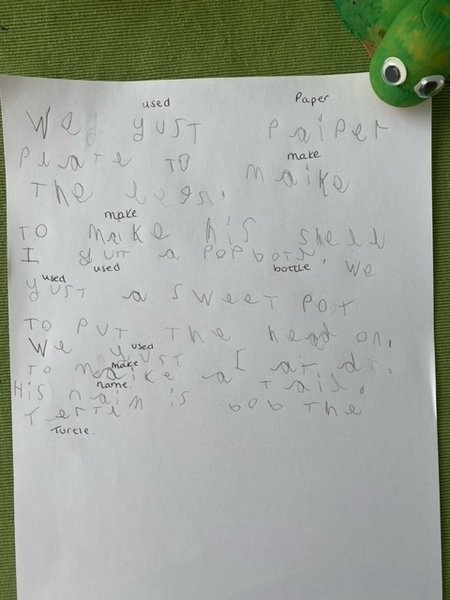 used Paper
We yust Paiper
Plate To make
The legs. maike
make
TO maike his shell
I yust a Pop botl.
used used bottle we
yust a sweet Pot
TO PUT The head on.
We used yust
make
TO maike a tail.
name.
His naim is bob The
Tertl
Turtle.